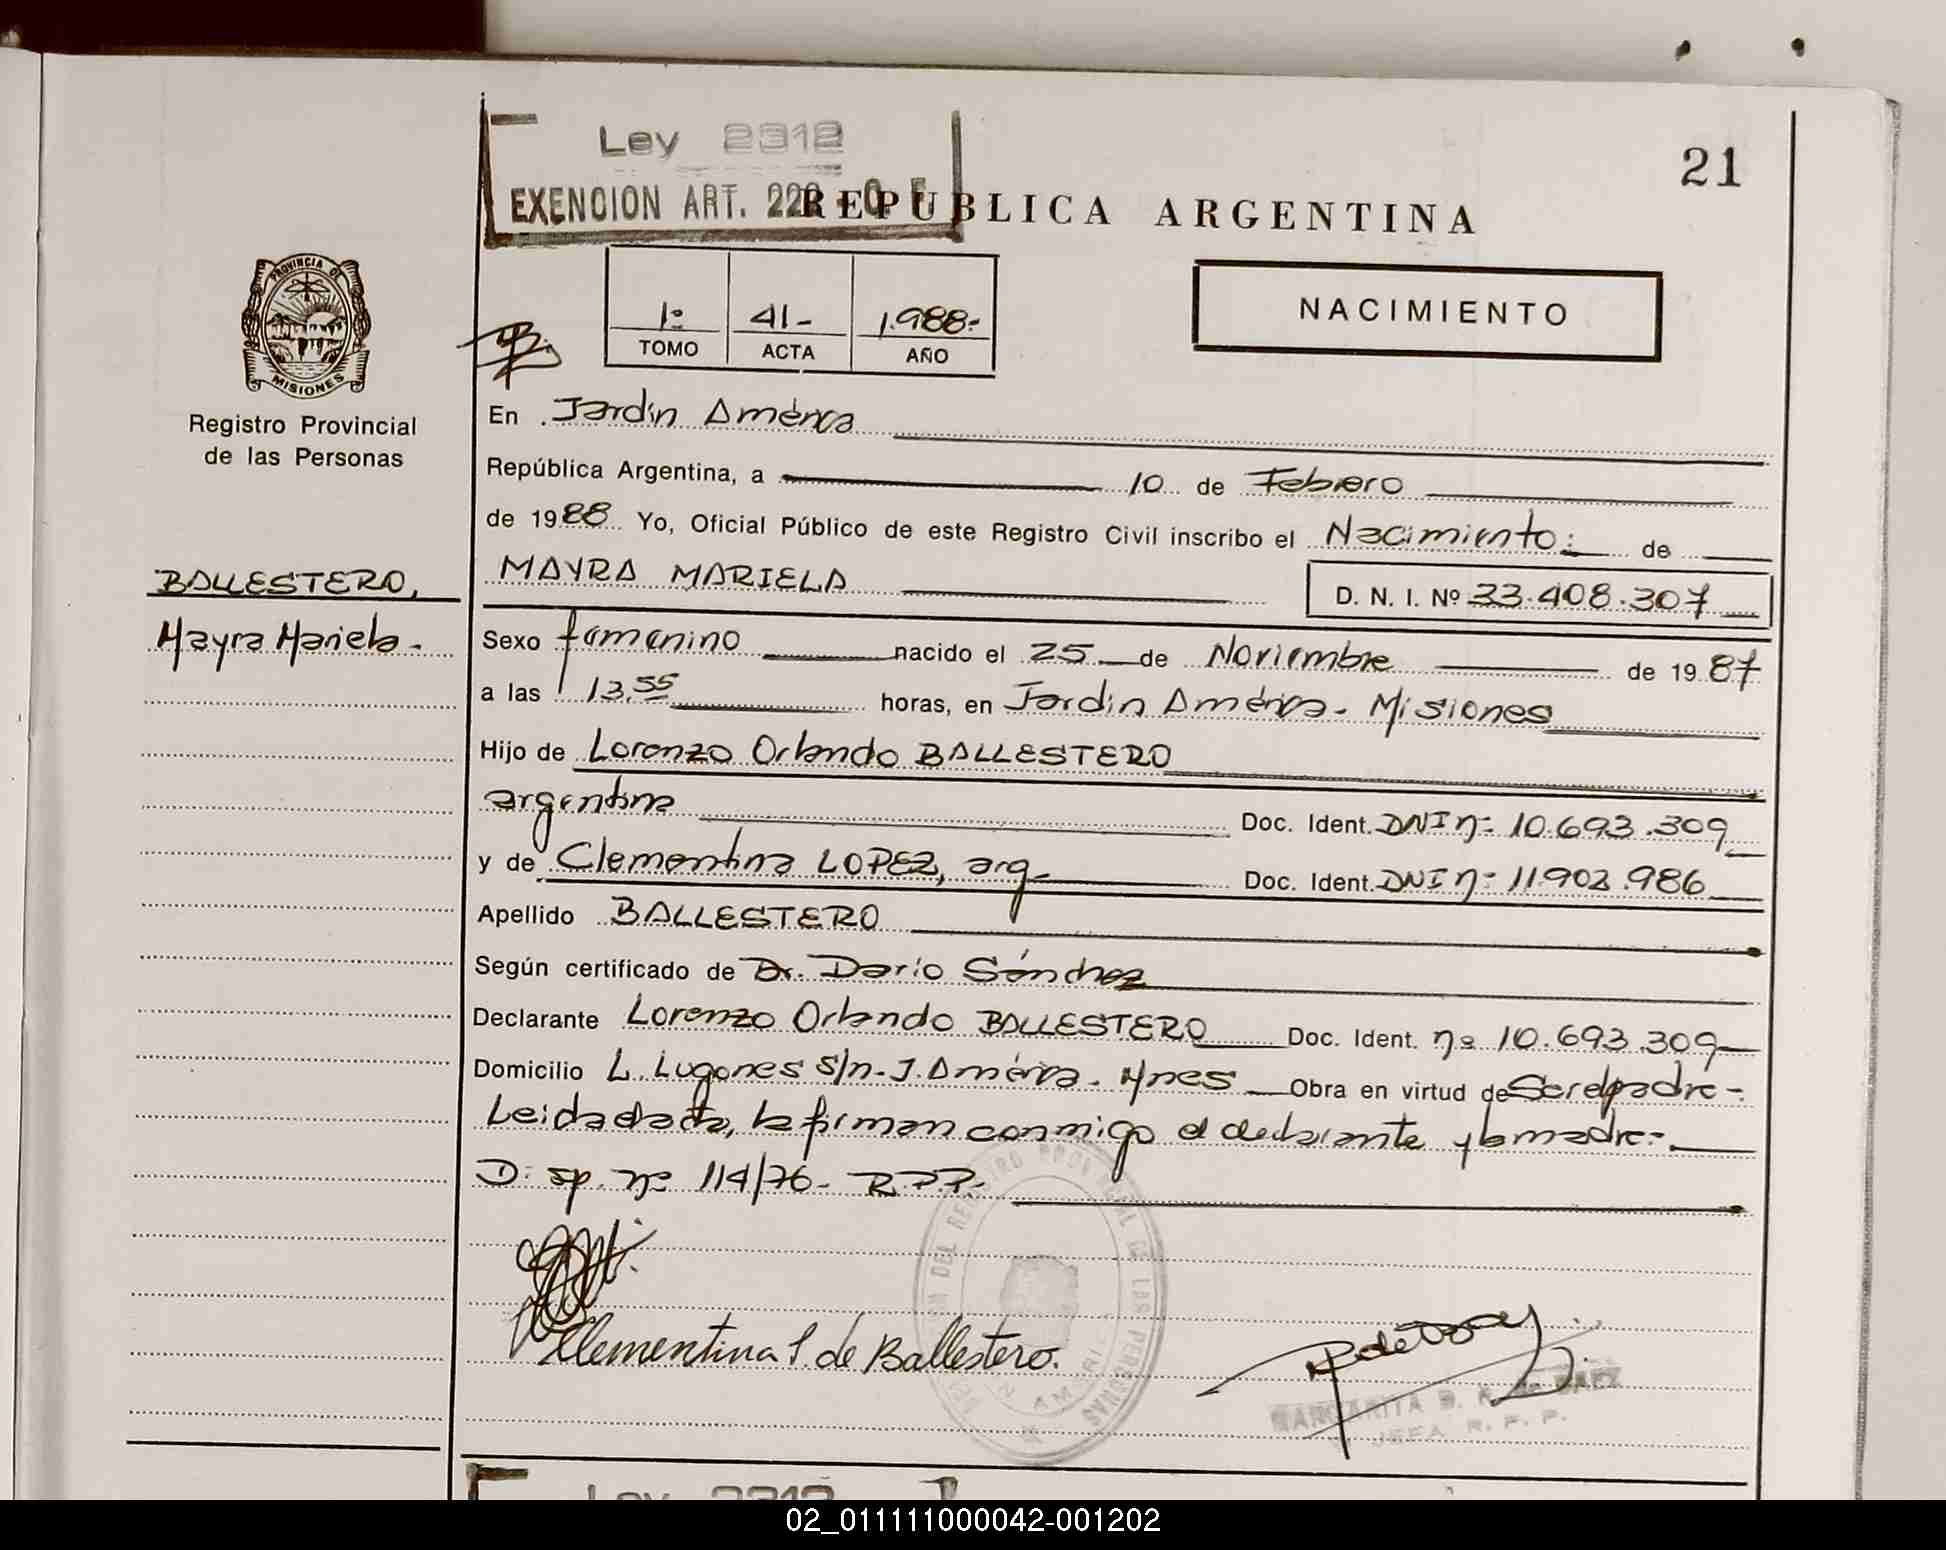 21
Ley 2312
EXENCION ART. 222
REPUBLICA ARGENTINA
PROVINCIA DE
MISIONES
Registro Provincial
de las Personas
1º 41- 1.988-
TOMO ACTA AÑO
NACIMIENTO
En Jardín América
República Argentina, a 10 de Febrero
de 1988 Yo, Oficial Público de este Registro Civil inscribo el Nacimiento: de
BALLESTERO,
Mayra Mariela-
MAYRA MARIELA D. N. I. Nº 33.408.307
Sexo femenino nacido el 25 de Noviembre de 1987
a las 13,55 horas, en Jardín América- Misiones
Hijo de Lorenzo Orlando BALLESTERO
argentina Doc. Ident. DNI nº 10.693.309
y de Clementina LOPEZ, arg- Doc. Ident. DNI nº 11.902.986
Apellido BALLESTERO
Según certificado de Dr. Darío Sánchez
Declarante Lorenzo Orlando BALLESTERO Doc. Ident. nº 10.693.309
Domicilio L. Lugones S/n- J. América- Mnes Obra en virtud de Ser el padre-
Leida el acta, la firman conmigo el declarante y la madre-
Disp. nº 114/76- R.P.P.
Clementina L. de Ballestero.
DEL REGISTRO PROVINCIAL DE LAS PERSONAS
MARGARITA B. de BAEZ
JEFA R. P. P.
Ley 2312
02_011111000042-001202